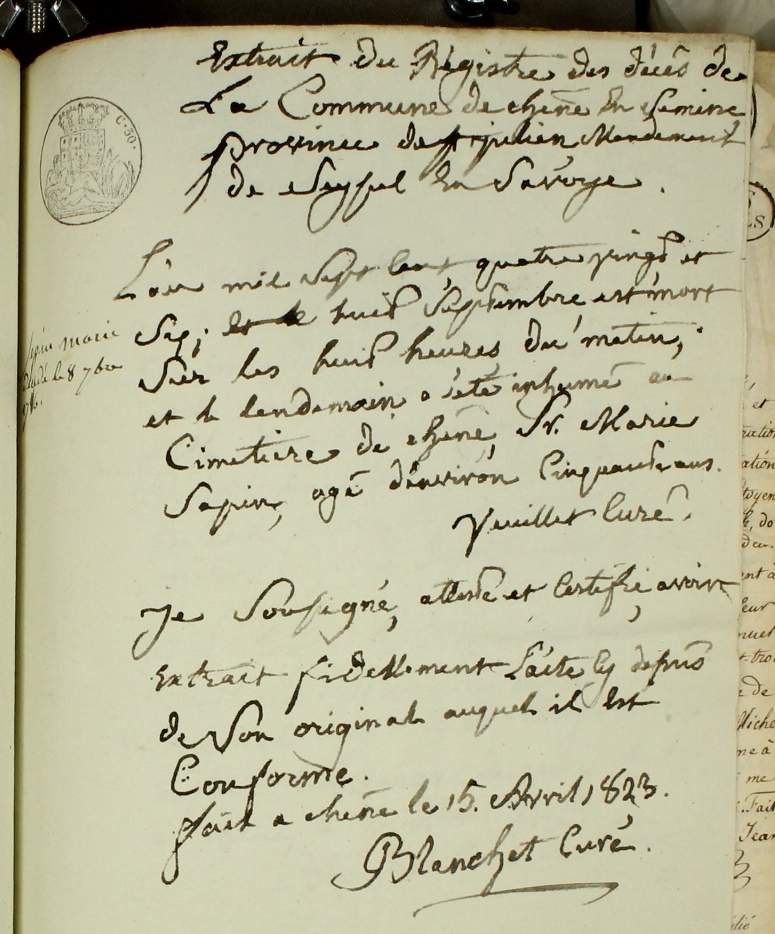 Extrait du Régistre des décès de
La Commune de chêne En Semine
province de St julien Mandement
de Seyssel En Savoye.
C. 50.
L'an mil sept Cent quatre vingt et
Sep; et le huit Septembre est mort
Sur les huit heures du matin,
et le lendemain a été inhumé au
Cimetiere de chêne, Sr. Marie
Sapin, agé d'environ Cinquante ans.
Veuillet Curé.
Sapin marie
le 8 7bre
Je Sousigné, atteste et Certifie avoir
Extrait fidellement L'acte Cy dessus
de Son original auquel il Est
Conforme.
fait a chêne le 15. Avril 1823.
Blanchet Curé.